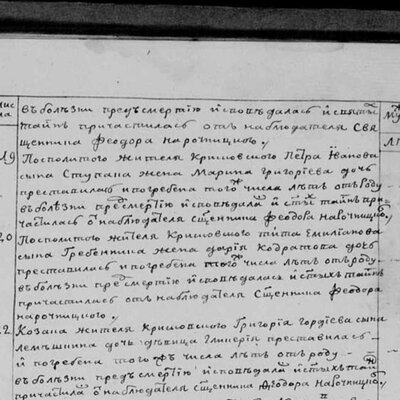 въ болѣзни предъсмертнію исповѣдалась и святыхъ
таинъ причастилась отъ наблюдателя Свя
щенника Феодора Нарочницкого,
19 Посполитого жителя Крисовского Петра Иванова
сына Ступака жена Марина григорїева дочь
преставилась и погребена того числа лѣтъ отъ роду
въ болѣзни пред смертію исповѣдалась и стыхъ таинъ при
частилась ѿ наблюдателя Сщенника Феодора Нарочницкого,
20 Посполитого жителя Крисовского тита Емилїанова
сына Гребенника жена дарїя Кодратова дочь
преставилась и погребена того числа лѣтъ отъ роду
въ болѣзни предъ смертїю исповѣдалась и стыхъ таинъ
причастилась отъ наблюдателя Сщенника Феодора
нарочницкого,
22 Козака жителя Крисовского Григорїя гордїева сына
лемѣшина дочь дѣвица гликерїя преставилась
и погребена того жъ числа лѣтъ отъ роду
въ болѣзни предъ смертїю исповѣдалась и стыхъ таинъ
причастилась ѿ наблюдателя Сщенника Феодора Нарочницкого,